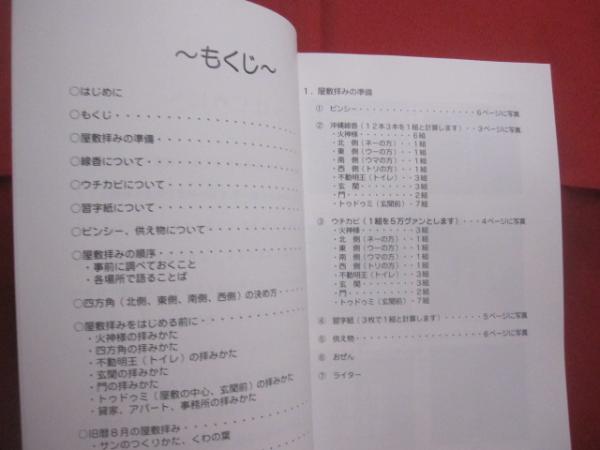 ～もくじ～
○はじめに
○もくじ・・・・・・・・・・・・・・・・・
○屋敷拝みの準備・・・・・・・・・・・・・
○線香について・・・・・・・・・・・・・・
○ウチカビについて・・・・・・・・・・・・
○習字紙について・・・・・・・・・・・・・
○ビンシー、供え物について・・・・・・・・
○屋敷拝みの順序・・・・・・・・・・・・・
・事前に調べておくこと
・各場所で語ることば
○四方角（北側、東側、南側、西側）の決め方・・・・
○屋敷拝みをはじめる前に・・・・・・・・・
・火神様の拝みかた
・四方角の拝みかた
・不動明王（トイレ）の拝みかた
・玄関の拝みかた
・門の拝みかた
・トゥドゥミ（屋敷の中心、玄関前）の拝みかた
・貸家、アパート、事務所の拝みかた
○旧暦８月の屋敷拝み・・・・・・・・・・・
・サンのつくりかた、くわの葉
１．屋敷拝みの準備
① ビンシー・・・・・・・・・・・・・・・６ページに写真
② 沖縄線香（１２本３本を１組と計算します）・・３ページに写真
・火神様・・・・・６組
・北 側（ネーの方）・・１組
・東 側（ウーの方）・・１組
・南 側（ウマの方）・・１組
・西 側（トリの方）・・１組
・不動明王（トイレ）・・３組
・玄 関・・・・・３組
・門・・・・・・・２組
・トゥドゥミ（玄関前）・・７組
③ ウチカビ（１組を５万ヴァンとします）・・・４ページに写真
・火神様・・・・・３組
・北 側（ネーの方）・・１組
・東 側（ウーの方）・・１組
・南 側（ウマの方）・・１組
・西 側（トリの方）・・１組
・不動明王（トイレ）・・３組
・玄 関・・・・・３組
・門・・・・・・・２組
・トゥドゥミ（玄関前）・・７組
④ 習字紙（３枚で１組と計算します）・・・・・５ページに写真
⑤ 供え物・・・・・・・・・・・・・・・６ページに写真
⑥ おぜん
⑦ ライター